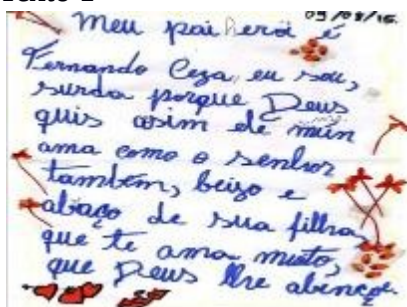 09/08/15.
Meu pai herói é
Fernando Ceza, eu sou,
surda porque Deus
quis asim ele mim
ama como o senhor
também, beizo e
abaço de sua filha,
que te ama muito,
que Deus lhe abençoe.